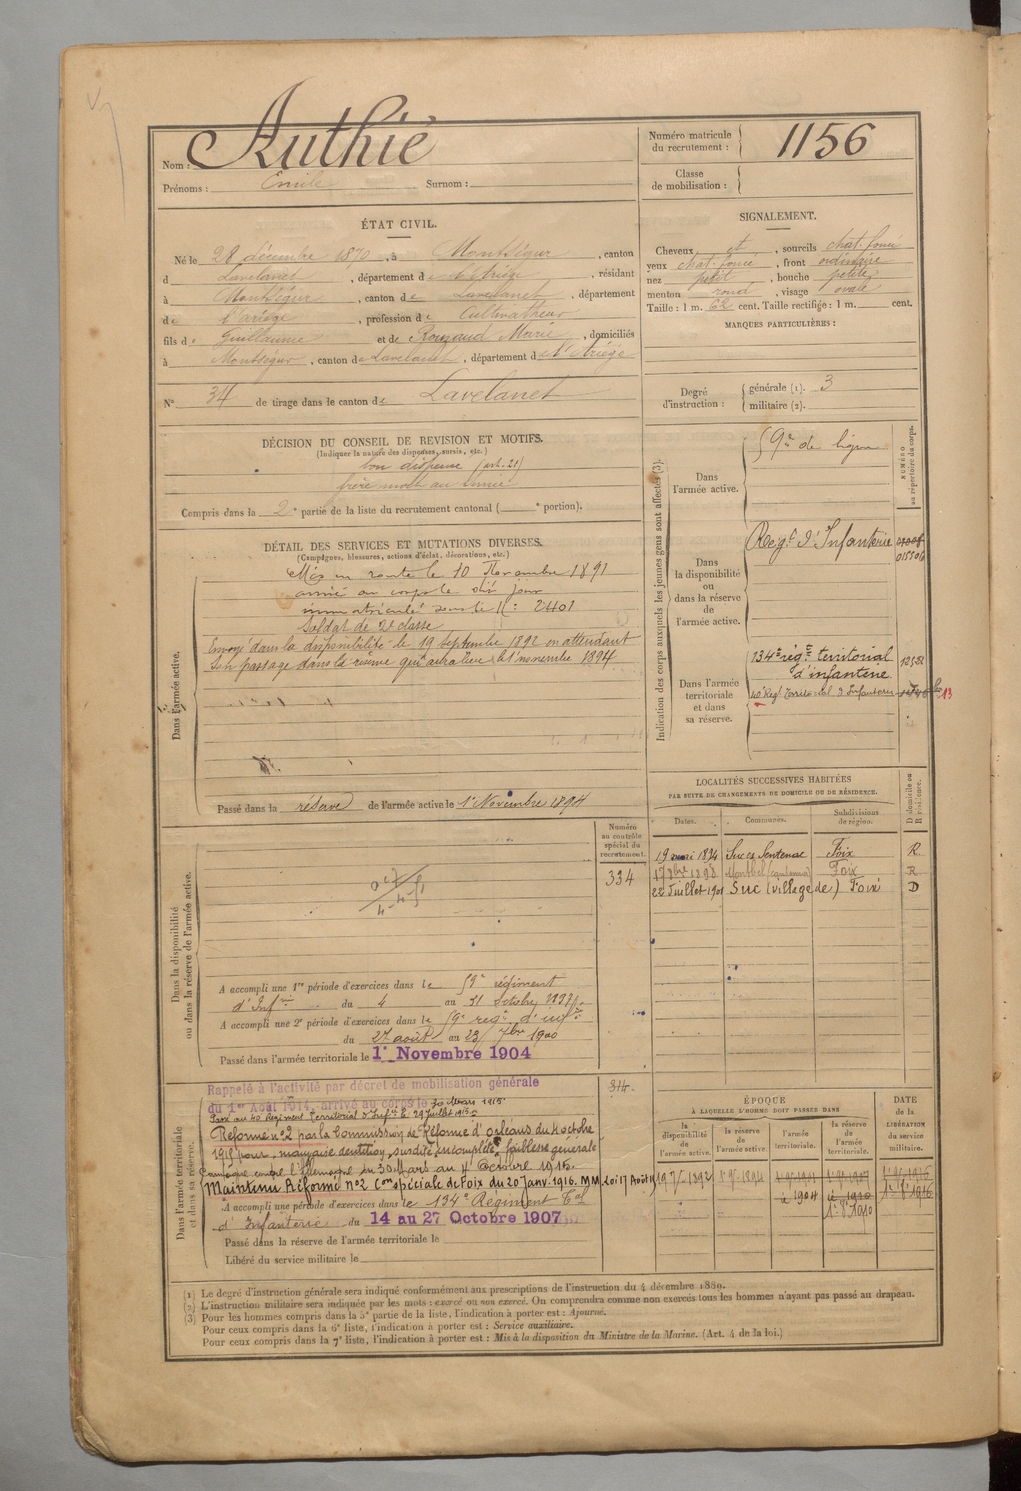 Nom : Authié
Prénoms : Emile Surnom :
Numéro matricule du recrutement : 1156
Classe de mobilisation :
ÉTAT CIVIL.
Né le 28 décembre 1870, à Montségur, canton
d Lavelanet, département de l'Ariège, résidant
à Montségur, canton de Lavelanet, département
de l'Ariège, profession de Cultivateur
fils de Guillaume et de Marie, domiciliés
à Montségur, canton de Lavelanet, département de l'Ariège
N° 34 de tirage dans le canton de Lavelanet
SIGNALEMENT.
Cheveux et, sourcils chat. foncé
yeux chat. foncé, front ordinaire
nez petit, bouche petite
menton rond, visage ovale
Taille : 1 m. 62 cent. Taille rectifiée : 1 m. cent.
MARQUES PARTICULIÈRES :
Degré d'instruction : générale (1). 3
militaire (2).
DÉCISION DU CONSEIL DE REVISION ET MOTIFS.
(Indiquer la nature des dispenses, sursis, etc.)
bon dispensé (art. 21)
frère mort au service
Compris dans la 2e partie de la liste du recrutement cantonal ( e portion).
DÉTAIL DES SERVICES ET MUTATIONS DIVERSES.
(Campagnes, blessures, actions d'éclat, décorations, etc.)
Dans l'armée active.
Mis en route le 10 Novembre 1891
arrivé au corps le dit jour
immatriculé sous le n° : 2401
Soldat de 2e classe
Envoyé dans la disponibilité le 19 septembre 1892 en attendant
son passage dans la réserve qui aura lieu le 1er novembre 1894
Passé dans la réserve de l'armée active le 1er Novembre 1894
Indication des corps auxquels les jeunes gens sont affectés (3).
NUMÉRO au répertoire du corps.
Dans l'armée active.
59e de ligne
Dans la disponibilité ou dans la réserve de l'armée active.
Regt d'Infanterie
Dans l'armée territoriale et dans sa réserve.
134e rég. territorial
d'infanterie
40 Regt Territorial d'Infanterie
LOCALITÉS SUCCESSIVES HABITÉES
PAR SUITE DE CHANGEMENTS DE DOMICILE OU DE RÉSIDENCE.
Dates. Communes. Subdivisions de région. D domicile ou R résidence.
19 mai 1894 Suc et Sentenac Foix R
1898 Montbel Foix R
22 Juillet 1901 Suc (village de) Foix D
Numéro au contrôle spécial du recrutement.
334
Dans la disponibilité ou dans la réserve de l'armée active.
A accompli une 1re période d'exercices dans le 59e régiment
d'Infrie du 4 au 31 Octobre 1897
A accompli une 2e période d'exercices dans le 59e regt d'infrie
du 27 août au 23 7bre 1900
Passé dans l'armée territoriale le 1er Novembre 1904
Dans l'armée territoriale et dans sa réserve.
314.
Rappelé à l'activité par décret de mobilisation générale
du 1er Août 1914, arrivé au corps le 30 Mars 1915
Passé au 40 Régiment Territorial d'Infrie le 29 Juillet 1915
Réformé n°2 par la Commission de Réforme d'Orléans du 4 octobre
1915 pour, mauvaise dentition, surdité incomplète, faiblesse générale
Campagne contre l'Allemagne du 30 Mars au 4 Octobre 1915.
Maintenu Réformé n°2 Con spéciale de Foix du 20 Janv. 1916. M M Loi 17 Août 15
A accompli une période d'exercices dans le 134e Régiment Tal
d'Infanterie du 14 au 27 Octobre 1907
Passé dans la réserve de l'armée territoriale le
Libéré du service militaire le
ÉPOQUE
À LAQUELLE L'HOMME DOIT PASSER DANS
la disponibilité de l'armée active. la réserve de l'armée active. l'armée territoriale. la réserve de l'armée territoriale.
DATE de la LIBÉRATION du service militaire.
1904
1910
(1) Le degré d'instruction générale sera indiqué conformément aux prescriptions de l'instruction du 4 décembre 1889.
(2) L'instruction militaire sera indiquée par les mots : exercé ou non exercé. On comprendra comme non exercés tous les hommes n'ayant pas passé au drapeau.
(3) Pour les hommes compris dans la 5e partie de la liste, l'indication à porter est : Ajourné.
Pour ceux compris dans la 6e liste, l'indication à porter est : Service auxiliaire.
Pour ceux compris dans la 7e liste, l'indication à porter est : Mis à la disposition du Ministre de la Marine. (Art. 4 de la loi.)